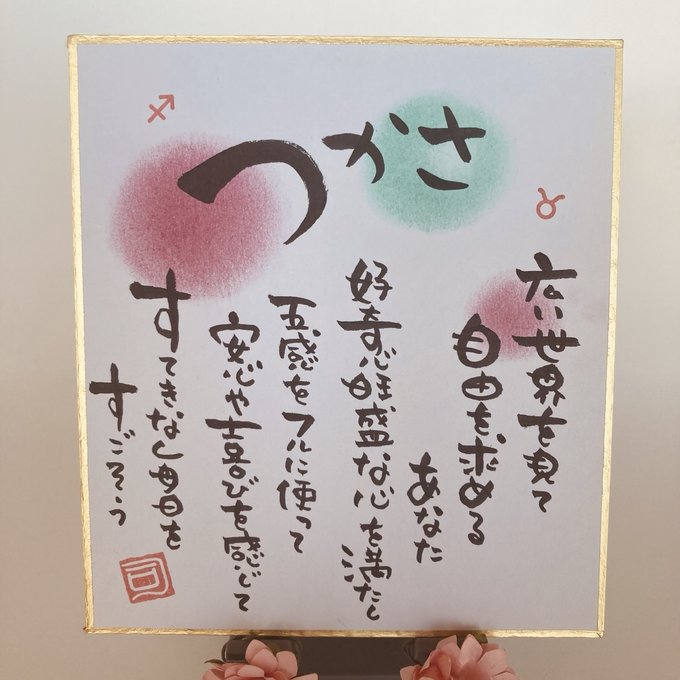 つかさ
広い世界を見て
自由を求める
あなた
好奇心旺盛な心を満たし
五感をフルに使って
安心や喜びを感じて
すてきな毎日を
すごそう
司